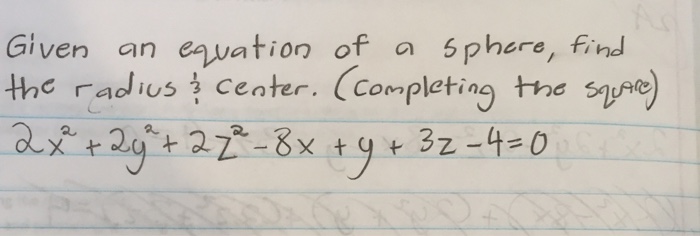 Given an equation of a sphere, find
the radius & center. (completing the square)
2x² + 2y² + 2z² - 8x + y + 3z - 4 = 0